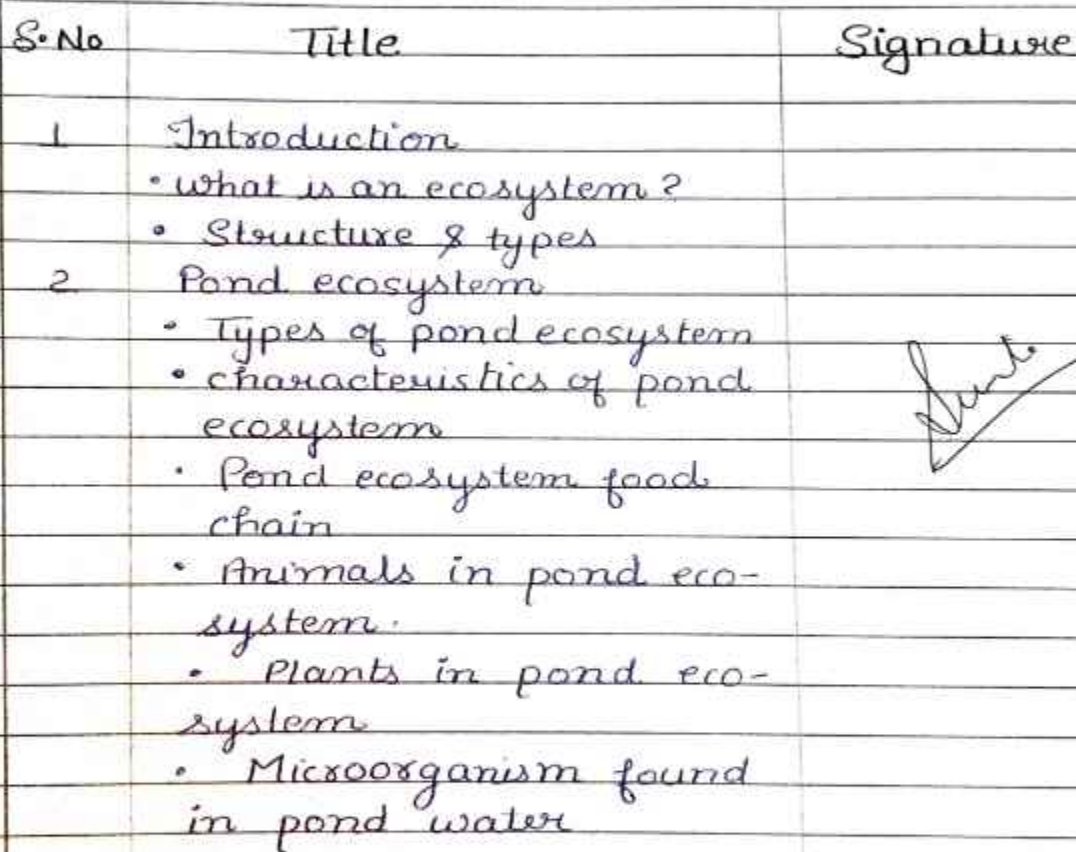 S.No Title Signature
1 Introduction
• What is an ecosystem?
• Structure & types
2 Pond ecosystem
• Types of pond ecosystem
• characteristics of pond
ecosystem
• Pond ecosystem food
chain
• Animals in pond eco-
system.
• Plants in pond eco-
system
• Microorganism found
in pond water